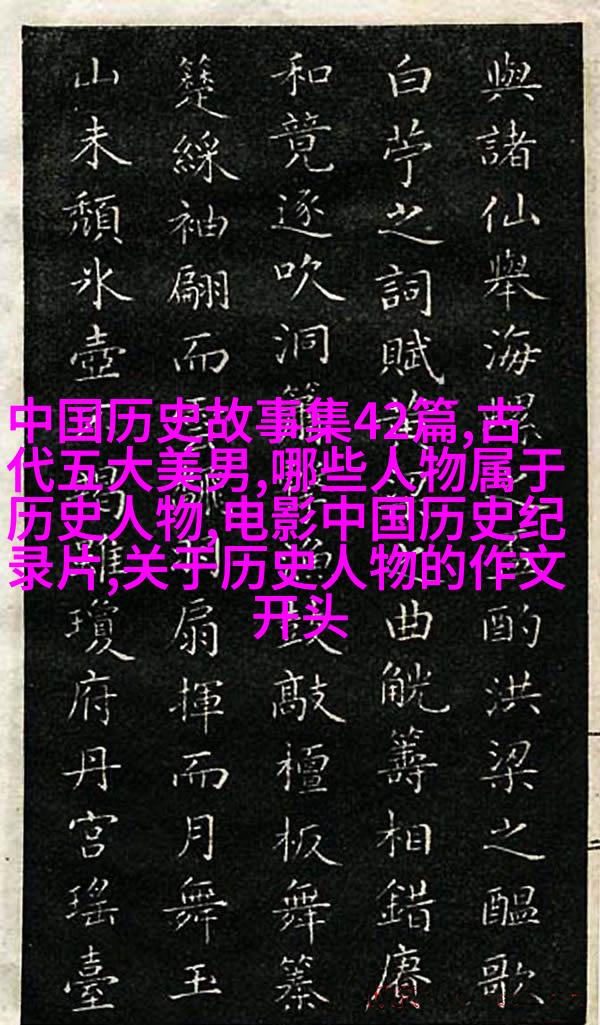 中国历史故事集42篇,古
代五大美男,哪些人物属于
历史人物,电影中国历史纪
录片,关于历史人物的作文
开头
與諸仙舉海螺酌洪梁之醞歌
白苧之詞賦曲觥籌相錯賡
和竟逐吹洞簫鼓敲檀板舞纂
綵袖翩而扇揮而月舞玉
山未頹氷壺雖瓊府丹宮瑤臺